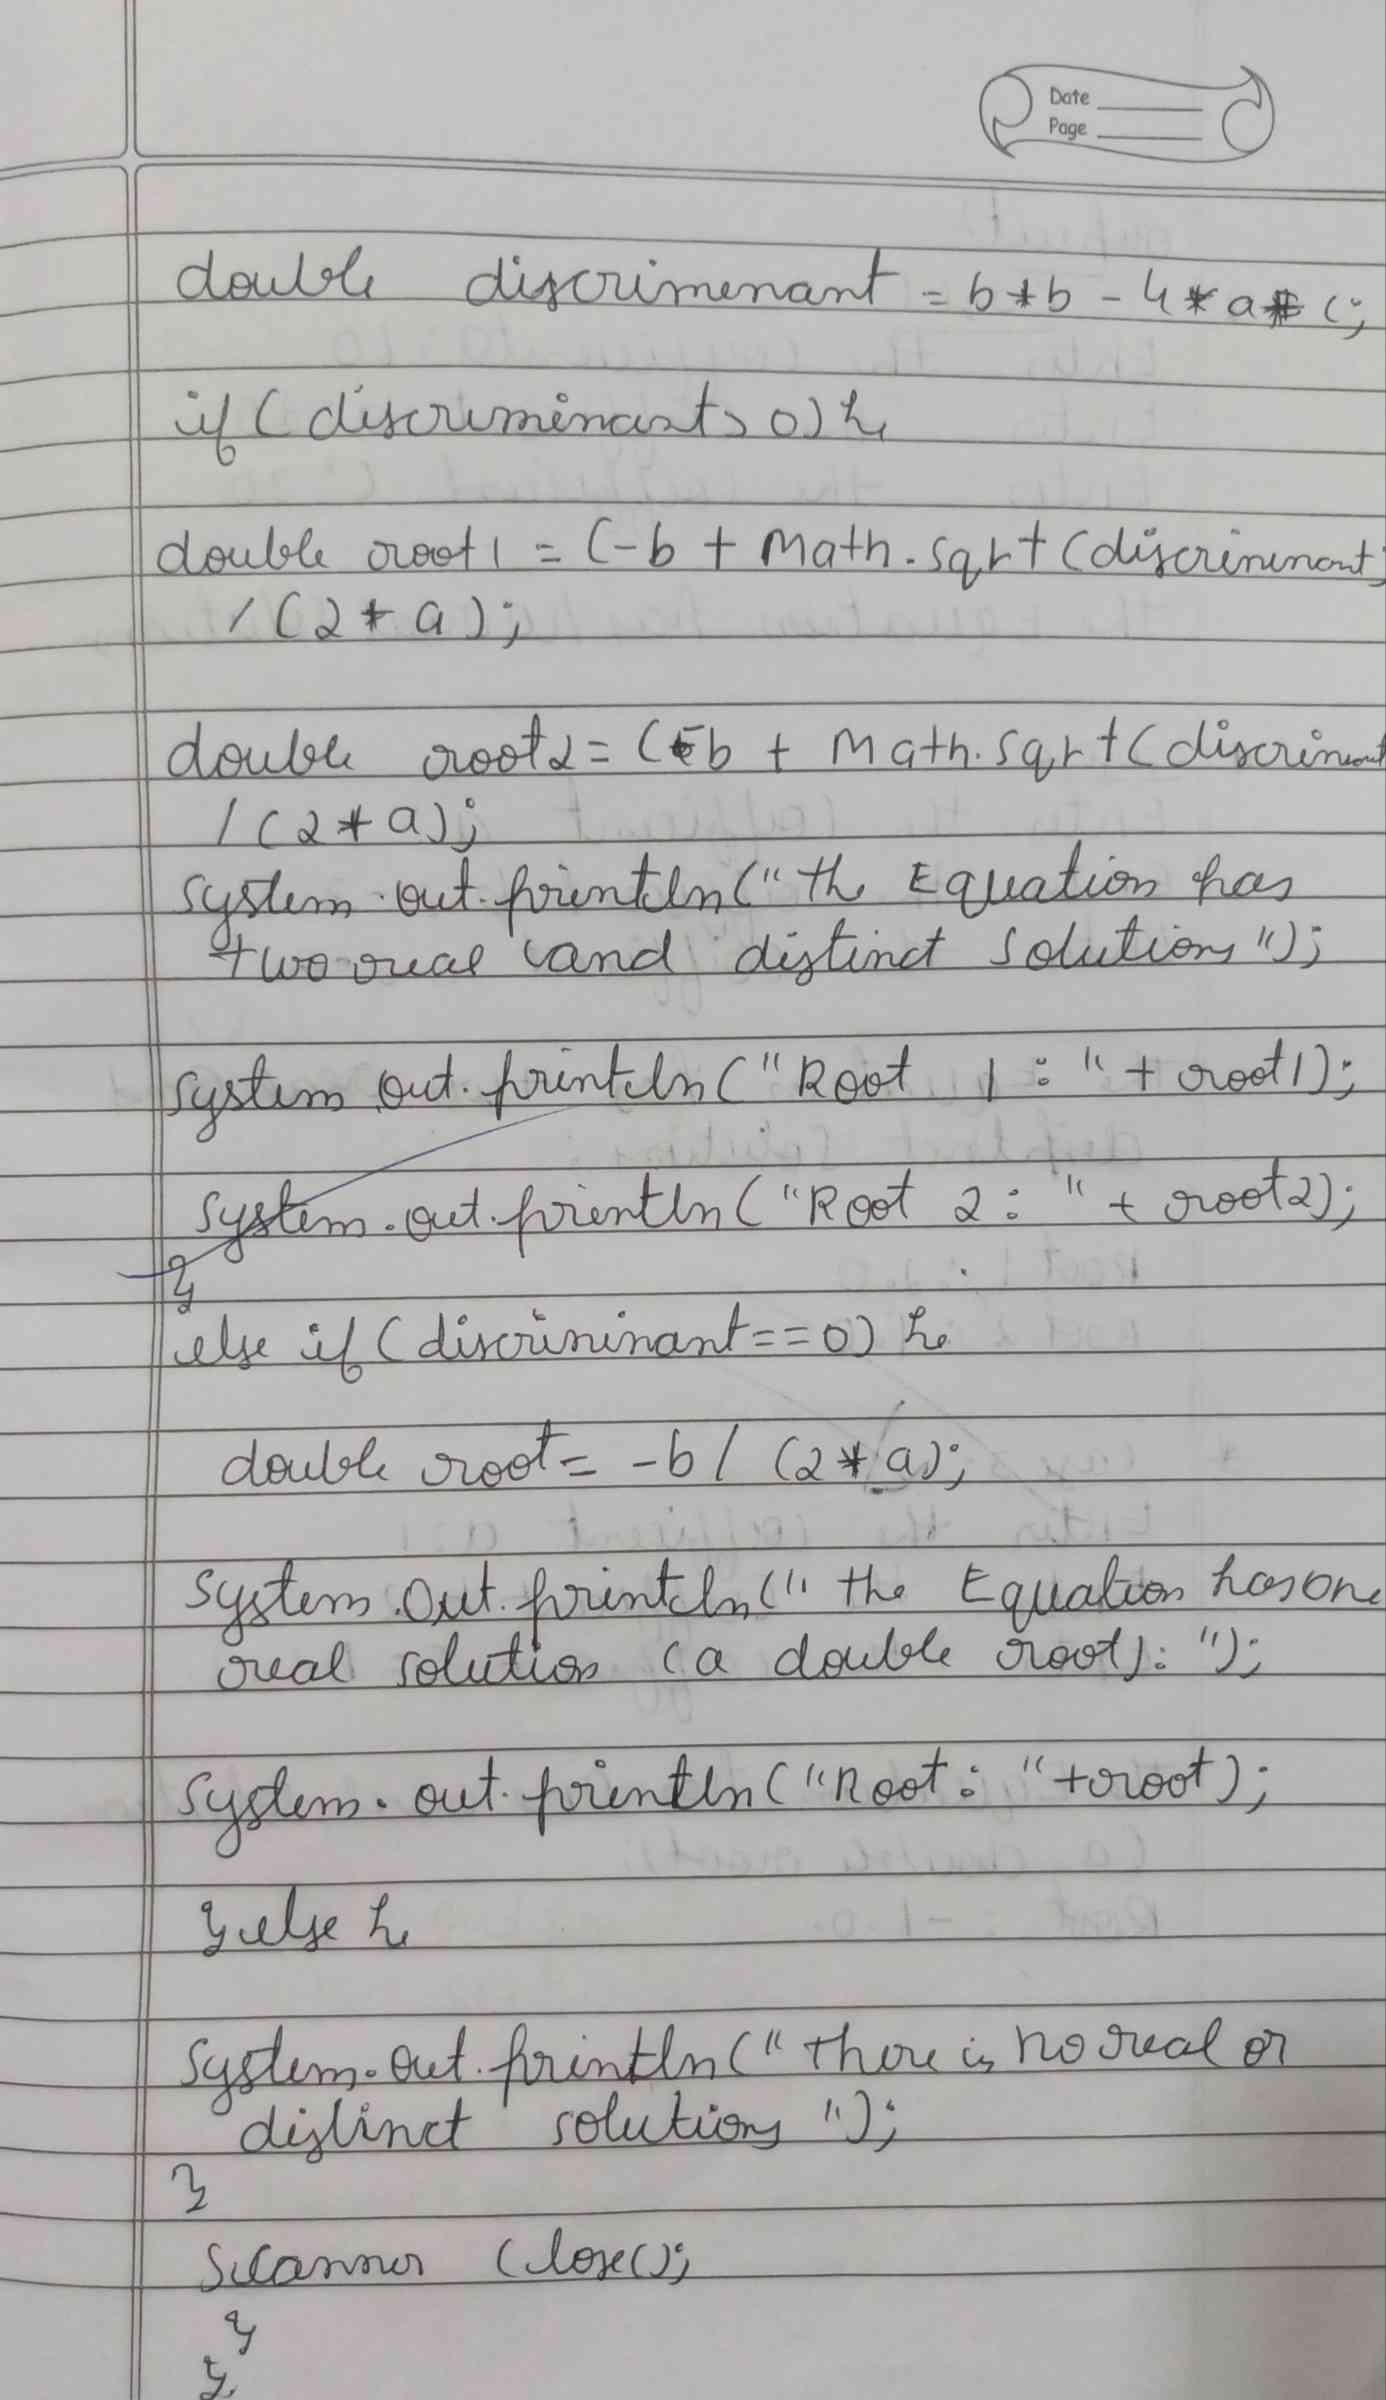 Date
Page
double discrimenant = b*b - 4*a*c;
if (discriminant > 0) {
double root1 = (-b + Math.sqrt(discriminant)
/ (2 * a);
double root2 = (-b + Math.sqrt(discriminant
/ (2 * a);
System.out.println("the Equation has
two real and distinct solutions");
System.out.println("Root 1 : " + root1);
System.out.println("Root 2 : " + root2);
}
else if (discrininant == 0) {
double root = -b / (2 * a);
System.out.println("the Equation has one
real solution (a double root): ");
System.out.println("Root : "+root);
} else {
System.out.println("there is no real or
distinct solutions");
}
Scanner Close();
}
}